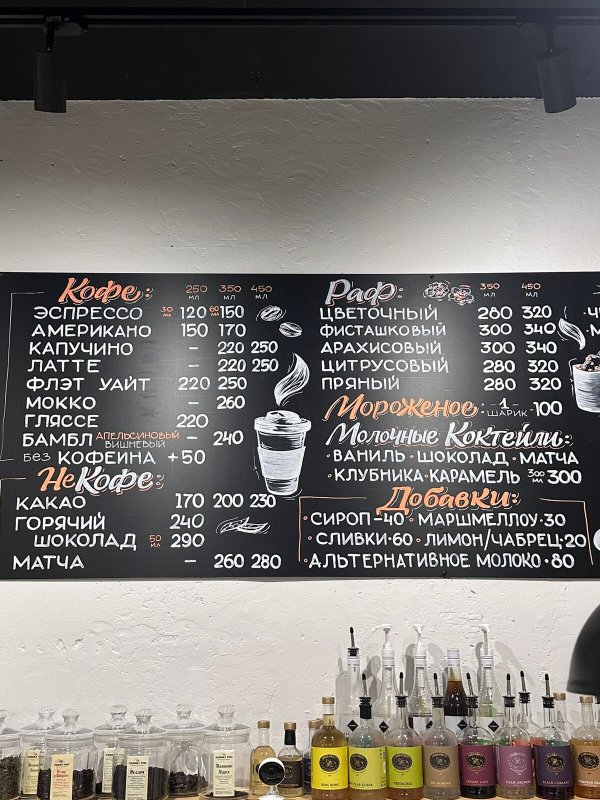 Кофе: 250 мл 350 мл 450 мл
ЭСПРЕССО 30 мл 120 60 мл 150
АМЕРИКАНО 150 170
КАПУЧИНО – 220 250
ЛАТТЕ – 220 250
ФЛЭТ УАЙТ 220 250
МОККО – 260
ГЛЯССЕ 220
БАМБЛ АПЕЛЬСИНОВЫЙ ВИШНЕВЫЙ – 240
БЕЗ КОФЕИНА +50
НеКофе:
КАКАО 170 200 230
ГОРЯЧИЙ 240
ШОКОЛАД 50 мл 290
МАТЧА – 260 280
Раф: 350 мл
ЦВЕТОЧНЫЙ 280 320
ФИСТАШКОВЫЙ 300 340
АРАХИСОВЫЙ 300 340
ЦИТРУСОВЫЙ 280 320
ПРЯНЫЙ 280 320
Мороженое: -1- ШАРИК -100
Молочные Коктейли:
·ВАНИЛЬ·ШОКОЛАД·МАТЧА
·КЛУБНИКА·КАРАМЕЛЬ 300 мл 300
Добавки:
·СИРОП-40·МАРШМЕЛЛОУ·30
·СЛИВКИ·60·ЛИМОН/ЧАБРЕЦ·20
·АЛЬТЕРНАТИВНОЕ МОЛОКО·80